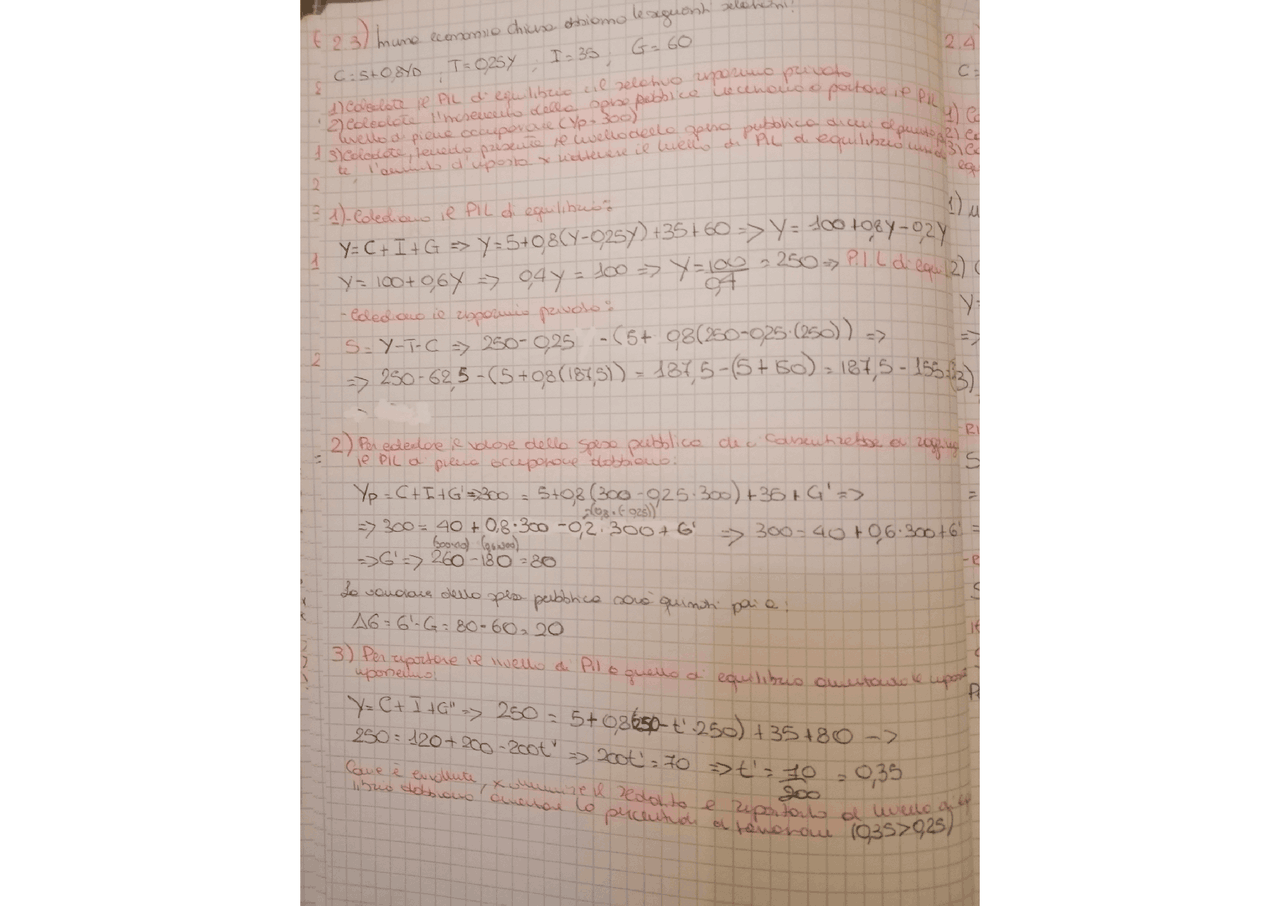 2.3) In una economia chiusa abbiamo le seguenti relazioni:
C=5+0,8YD, T=0,25Y, I=35, G=60
1) Calcolate il PIL di equilibrio e il relativo risparmio privato
2) Calcolate l'incremento della spesa pubblica necessario a portare il PIL
livello di piena occupazione (Yp=300)
3) Calcolate, tenendo presente il livello della spesa pubblica di cui al punto
te l'aumento d'imposta x mantenere il livello di PIL di equilibrio
1)-Calcoliamo il PIL di equilibrio:
Y=C+I+G => Y=5+0,8(Y-0,25Y)+35+60 => Y=100+0,8Y-0,2Y
Y=100+0,6Y => 0,4Y=100 => Y=100/0,4=250 => P.I.L di equi
-Calcoliamo il risparmio privato:
S=Y-T-C => 250-0,25 -(5+0,8(250-0,25·(250)) =>
=> 250-62,5-(5+0,8(187,5)) = 187,5-(5+150) = 187,5-155
2) Per calcolare il valore della spesa pubblica che consentirebbe di raggiung
il PIL di piena occupazione dobbiamo:
Yp=C+I+G' => 300=5+0,8(300-0,25·300)+35+G' =>
=(0,8·(-0,25))
=> 300=40+0,8·300-0,2·300+G' => 300=40+0,6·300+G'
=> G' => 260-180=80
La variazione della spesa pubblica sarà quindi pari a:
ΔG=G'-G=80-60=20
3) Per riportare il livello di Pil a quello di equilibrio aumentando le impos
Y=C+I+G" => 250=5+0,8(250-t'·250)+35+80 ->
250=120+200-200t' => 200t'=70 => t'=70/200=0,35
Come è evidente, x diminuire il reddito e riportarlo al livello di
librio dobbiamo aumentare la percentuale di tassazione (0,35>0,25)
2.4
C=
1)
2)
3)
1)
2)
Y=
=>
3)